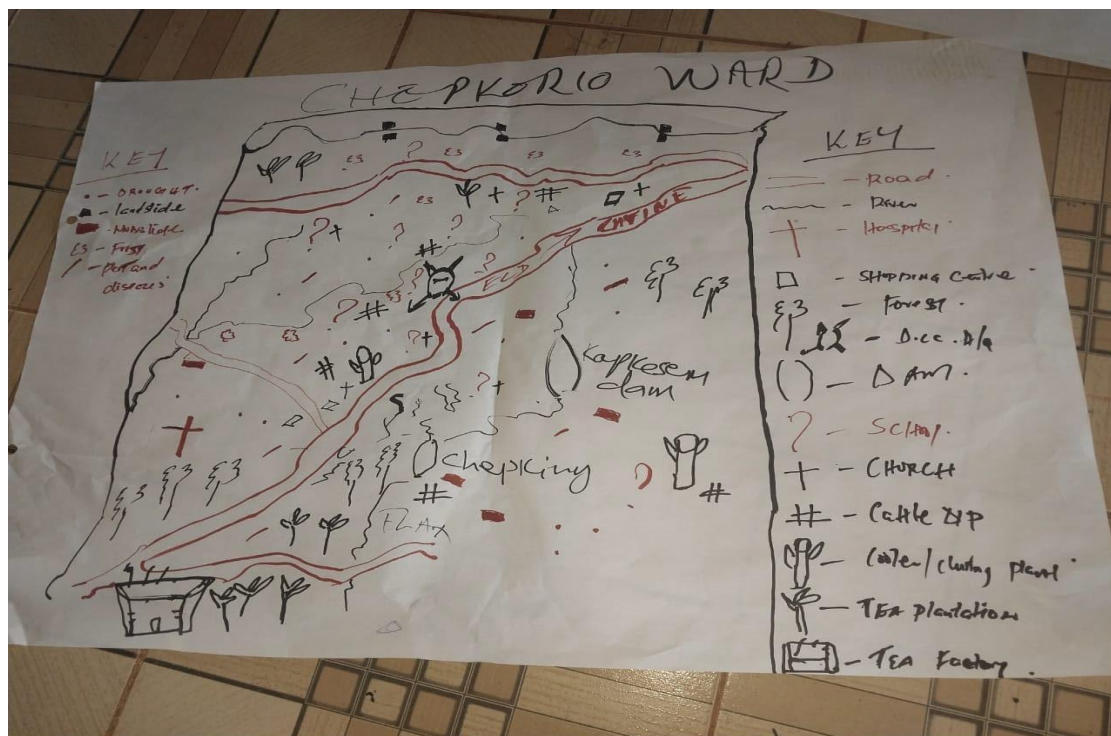 CHEPKORIO WARD
KEY
- DROUGHT.
- landslide
- Mudslide
- Frost
- Pest and
diseases
CHTINE
ELD
Kapkesem
dam
chepkiny
FLAX
KEY
- Road.
- River
- Hospital
- SHOPPING Centre
- Forest.
- DAM.
- School.
- CHURCH
- Cattle DIP
- Cooler/ plant
- TEA plantation
- TEA Factory.